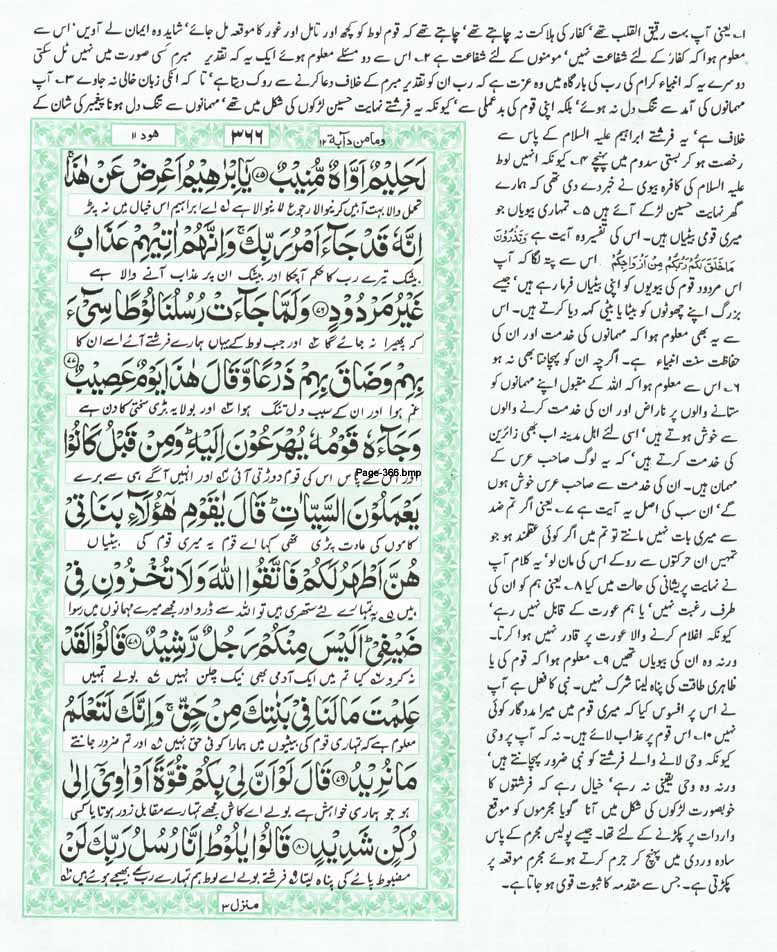 ۱؎ یعنی آپ بہت رقیق القلب تھے‘ کفار کی ہلاکت نہ چاہتے تھے‘ چاہتے تھے کہ قوم لوط کو کچھ اور تامل اور غور کا موقعہ مل جائے‘ شاید وہ ایمان لے آویں‘ اس سے
معلوم ہوا کہ کفار کے لئے شفاعت نہیں‘ مومنوں کے لئے شفاعت ہے ۲؎ اس سے دو مسئلے معلوم ہوئے ایک یہ کہ تقدیر مبرم کسی صورت میں نہیں ٹل سکتی
دوسرے یہ کہ انبیاء کرام کی رب کی بارگاہ میں وہ عزت ہے کہ رب ان کو تقدیر مبرم کے خلاف دعا کرنے سے روک دیتا ہے‘ تا کہ انکی زبان خالی نہ جاوے ۳؎ آپ
مہمانوں کی آمد سے تنگ دل نہ ہوئے‘ بلکہ اپنی قوم کی بدعملی سے‘ کیونکہ یہ فرشتے نہایت حسین لڑکوں کی شکل میں تھے‘ مہمانوں سے تنگ دل ہونا پیغمبر کی شان کے
خلاف ہے‘ یہ فرشتے ابراہیم علیہ السلام کے پاس سے
رخصت ہو کر بستی سدوم میں پہنچے ۴؎ کیونکہ انہیں لوط
علیہ السلام کی کافرہ بیوی نے خبر دے دی تھی کہ ہمارے
گھر نہایت حسین لڑکے آئے ہیں ۵؎ تمہاری بیویاں جو
میری قومی بیٹیاں ہیں۔ اس کی تفسیر وہ آیت ہے وَتَذَرُوْنَ
مَاخَلَقَ لَکُمْ رَبُّکُمْ مِنْ اَزْوَاجِکُمْ اس سے پتہ لگا کہ آپ
اس مردود قوم کی بیویوں کو اپنی بیٹیاں فرما رہے ہیں‘ جیسے
بزرگ اپنے چھوٹوں کو بیٹا یا بیٹی کہہ دیا کرتے ہیں۔ اس
سے یہ بھی معلوم ہوا کہ مہمانوں کی خدمت اور ان کی
حفاظت سنت انبیاء ہے۔ اگرچہ ان کو پہچانتا بھی نہ ہو
۶؎ اس سے معلوم ہوا کہ اللہ کے مقبول اپنے مہمانوں کو
ستانے والوں پر ناراض اور ان کی خدمت کرنے والوں
سے خوش ہوتے ہیں‘ اسی لئے اہل مدینہ اب بھی زائرین
کی خدمت کرتے ہیں‘ کہ یہ لوگ صاحب عرس کے
مہمان ہیں۔ ان کی خدمت سے صاحب عرس خوش ہوں
گے‘ ان سب کی اصل یہ آیت ہے ۷؎ یعنی اگر تم ضد
سے میری بات نہیں مانتے تو تم میں اگر کوئی عقلمند ہو جو
تمہیں ان حرکتوں سے روکے اس کی مان لو‘ یہ کلام آپ
نے نہایت پریشانی کی حالت میں کیا ۸؎ یعنی ہم کو ان کی
طرف رغبت نہیں‘ یا ہم عورت کے قابل نہیں رہے‘
کیونکہ اغلام کرنے والا عورت پر قادر نہیں ہوا کرتا۔
ورنہ وہ ان کی بیویاں تھیں ۹؎ معلوم ہوا کہ قوم کی یا
ظاہری طاقت کی پناہ لینا شرک نہیں۔ نبی کا فعل ہے آپ
نے اس پر افسوس کیا کہ میری قوم میں میرا مددگار کوئی
نہیں ۱۰؎ اس قوم پر عذاب لائے ہیں۔ نہ کہ آپ پر وحی
کیونکہ وحی لانے والے فرشتے کو نبی ضرور پہچانتے ہیں‘
ورنہ وہ وحی یقینی نہ رہے‘ خیال رہے کہ فرشتوں کا
خوبصورت لڑکوں کی شکل میں آنا گویا مجرموں کو موقع
واردات پر پکڑنے کے لئے تھا۔ جیسے پولیس مجرم کے پاس
سادہ وردی میں پہنچ کر جرم کرتے ہوئے مجرم موقعہ پر
پکڑتی ہے۔ جس سے مقدمہ کا ثبوت قوی ہو جاتا ہے۔
ومامن دآبۃ ۱۲ ۳۶۶ ھود ۱۱
لَحَلِیْمٌ اَوَّاہٌ مُّنِیْبٌ ۷۵ یٰۤاِبْرٰھِیْمُ اَعْرِضْ عَنْ ھٰذَا
تحمل والا بہت آہیں کرنیوالا رجوع لانیوالا ہے اے ابراہیم اس خیال میں نہ پڑ
اِنَّہٗ قَدْ جَآءَ اَمْرُ رَبِّکَ وَاِنَّھُمْ اٰتِیْھِمْ عَذَابٌ
بیشک تیرے رب کا حکم آچکا اور بیشک ان پر عذاب آنے والا ہے
غَیْرُ مَرْدُوْدٍ ۷۶ وَلَمَّا جَآءَتْ رُسُلُنَا لُوْطًا سِیْٓءَ
کہ پھیرا نہ جائے گا اور جب لوط کے یہاں ہمارے فرشتے آئے اسے ان کا
بِھِمْ وَضَاقَ بِھِمْ ذَرْعًا وَّقَالَ ھٰذَا یَوْمٌ عَصِیْبٌ ۷۷
غم ہوا اور ان کے سبب دل تنگ ہوا اور بولا یہ بڑی سختی کا دن ہے
وَجَآءَہٗ قَوْمُہٗ یُھْرَعُوْنَ اِلَیْہِ وَمِنْ قَبْلُ کَانُوْا
Page-366.bmp
اور اس کے پاس اس کی قوم دوڑتی آئی اور انہیں آگے ہی سے برے
یَعْمَلُوْنَ السَّیِّاٰتِ قَالَ یٰقَوْمِ ھٰۤؤُلَآءِ بَنَاتِیْ
کاموں کی عادت پڑی تھی کہا اے قوم یہ میری قوم کی بیٹیاں
ھُنَّ اَطْھَرُ لَکُمْ فَاتَّقُوا اللہَ وَلَا تُخْزُوْنِ فِیْ
ہیں یہ تمہارے لئے ستھری ہیں تو اللہ سے ڈرو اور مجھے میرے مہمانوں میں رسوا
ضَیْفِیْ اَلَیْسَ مِنْکُمْ رَجُلٌ رَّشِیْدٌ ۷۸ قَالُوْا لَقَدْ
نہ کرو کیا تم میں ایک آدمی بھی نیک چلن نہیں بولے تمہیں
عَلِمْتَ مَا لَنَا فِیْ بَنٰتِکَ مِنْ حَقٍّ وَاِنَّکَ لَتَعْلَمُ
معلوم ہے کہ تمہاری قوم کی بیٹیوں میں ہمارا کوئی حق نہیں اور تم ضرور جانتے
مَا نُرِیْدُ ۷۹ قَالَ لَوْ اَنَّ لِیْ بِکُمْ قُوَّۃً اَوْ اٰوِیْٓ اِلٰی
ہو جو ہماری خواہش ہے بولے اے کاش مجھے تمہارے مقابل زور ہوتا یا کسی
رُکْنٍ شَدِیْدٍ ۸۰ قَالُوْا یٰلُوْطُ اِنَّا رُسُلُ رَبِّکَ لَنْ
مضبوط پائے کی پناہ لیتا فرشتے بولے اے لوط ہم تمہارے رب کے بھیجے ہوئے ہیں
منزل ۳